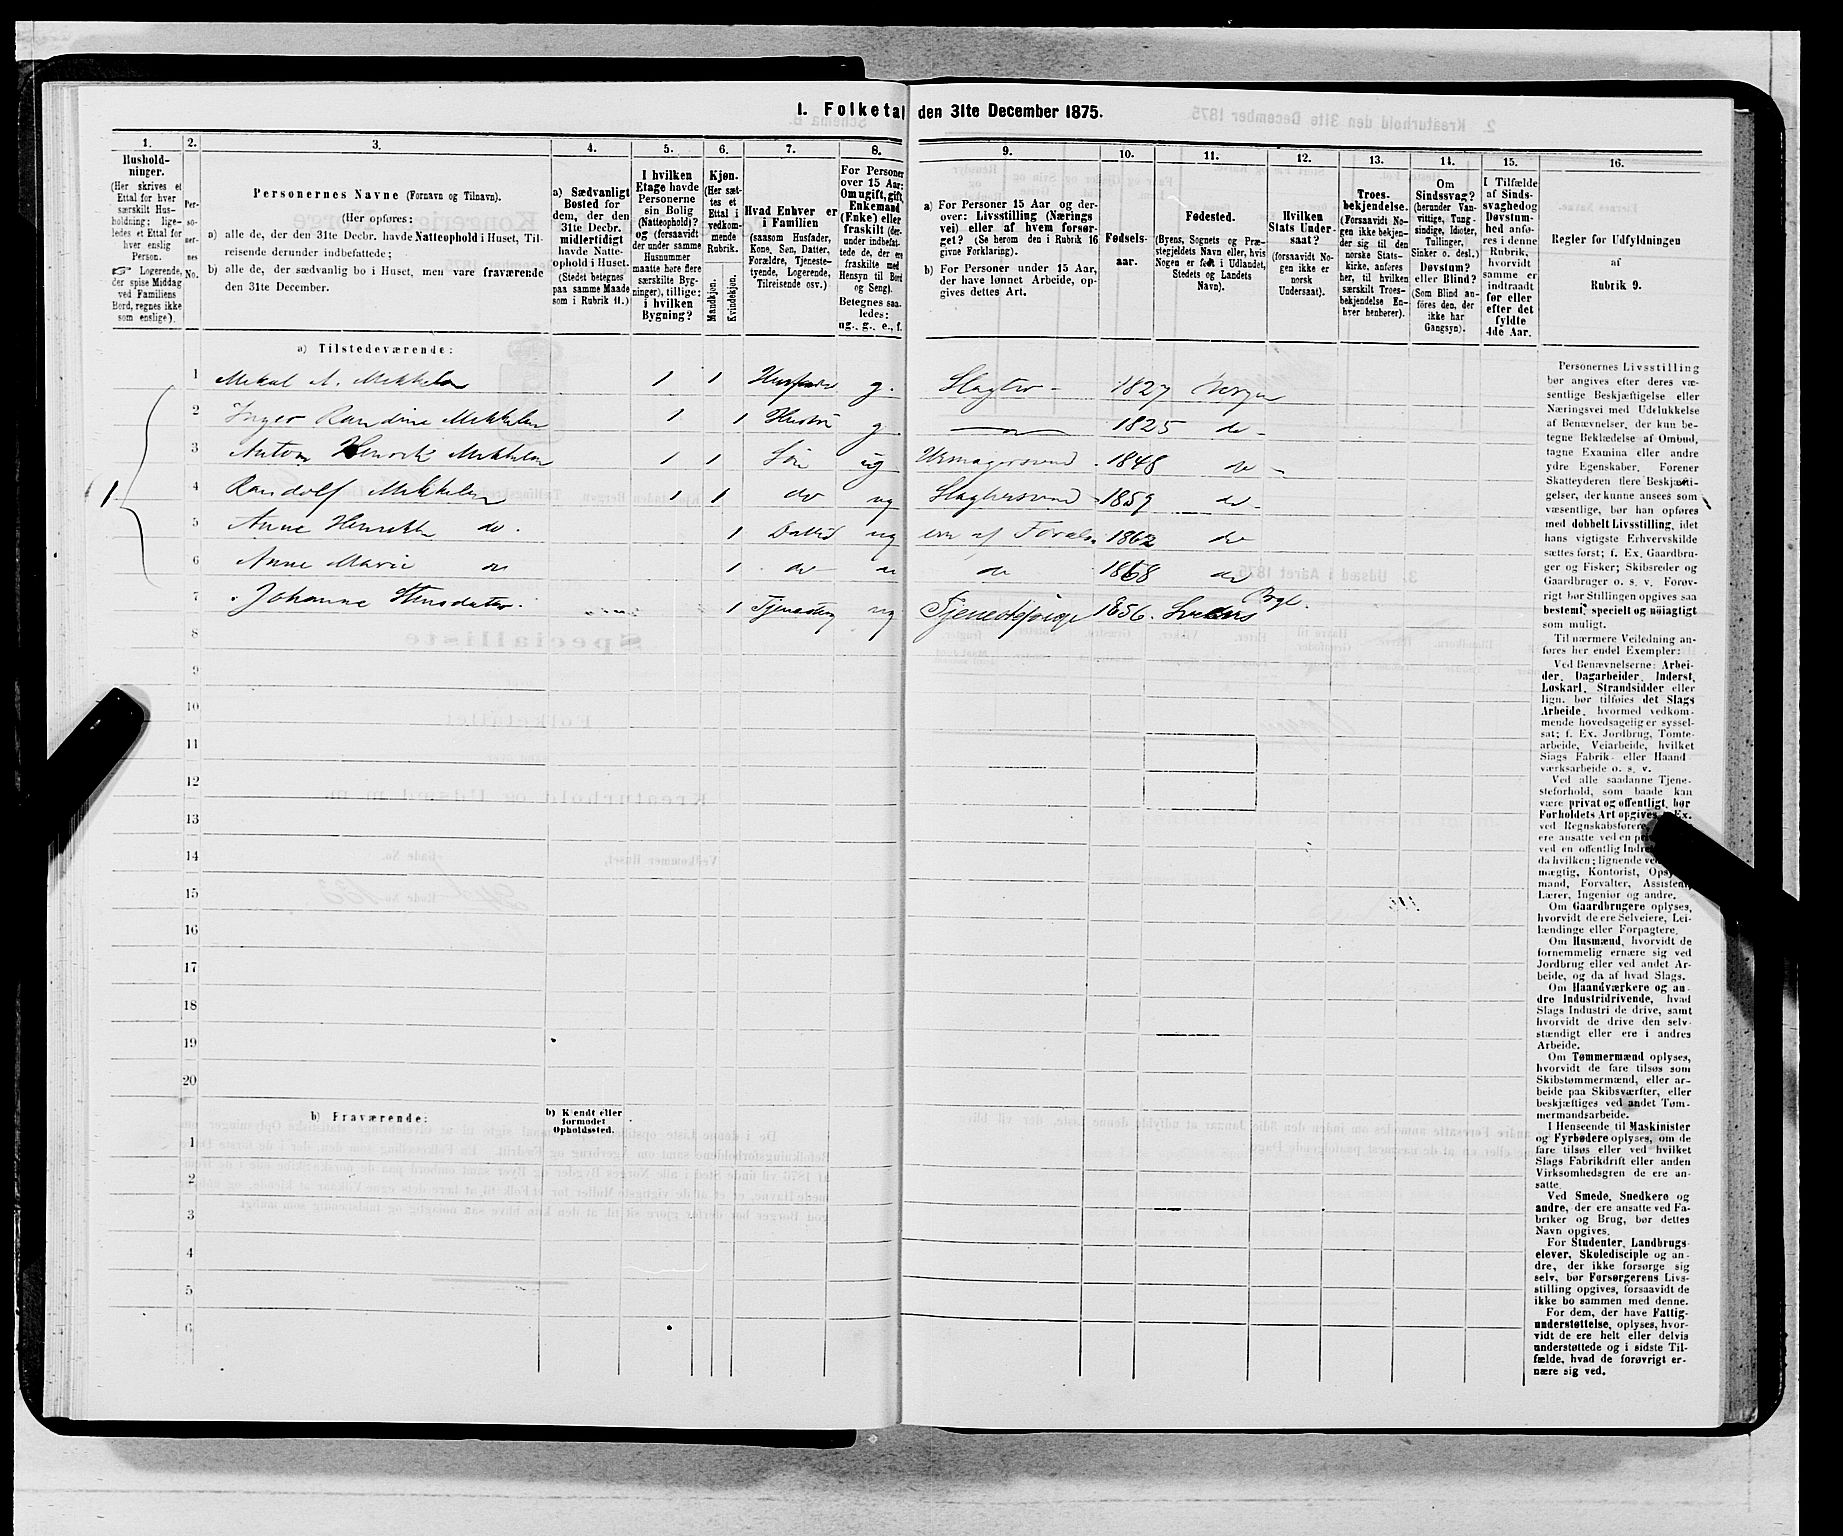 1. Folketal den 31te December 1875.
1. Husholdninger. (Her skrives et Ettal for hver særskilt Husholdning; ligeledes et Ettal for hver enslig Person. ☞ Logerende, der spise Middag ved Familiens Bord, regnes ikke som enslige).
2. Personernes No.
3. Personernes Navne (Fornavn og Tilnavn). (Her opføres:
a) alle de, der den 31te Decbr. havde Natteophold i Huset, Tilreisende derunder indbefattede;
b) alle de, der sædvanlig bo i Huset, men vare fraværende den 31te December.
4. a) Sædvanligt Bosted for dem, der den 31te Decbr. midlertidigt havde Natteophold i Huset. (Stedet betegnes paa samme Maade som i Rubrik 11.)
5. I hvilken Etage havde Personerne sin Bolig (Natteophold)? og (forsaavidt der under samme Husnummer maatte høre flere særskilte Bygninger), tillige: i hvilken Bygning?
6. Kjøn. (Her sættes et Ettal i vedkommende Rubrik. Mandkjøn. Kvindekjøn.
7. Hvad Enhver er i Familien (saasom Husfader, Kone, Søn, Datter, Forældre, Tjenestetyende, Logerende, Tilreisende osv.)
8. For Personer over 15 Aar: Om ugift, gift, Enkemand (Enke) eller fraskilt (derunder indbefattede de, der ere fraskilte med Hensyn til Bord og Seng). Betegnes saaledes: ug., g., e., f.
9. a) For Personer 15 Aar og derover: Livsstilling (Næringsvei) eller af hvem forsørget? (Se herom den i Rubrik 16 givne Forklaring).
b) For Personer under 15 Aar, der have lønnet Arbeide, opgives dettes Art.
10. Fødselsaar.
11. Fødested. (Byens, Sognets og Præstegjeldets Navn eller, hvis Nogen er født i Udlandet, Stedets og Landets Navn).
12. Hvilken Stats Undersaat? (forsaavidt Nogen ikke er norsk Undersaat).
13. Troesbekjendelse. (Forsaavidt Nogen ikke bekjender sig til den norske Statskirke, anføres her, til hvilken særskilt Troesbekjendelse Enhver henhører).
14. Om Sindssvag? (herunder Vanvittige, Tungsindige, Idioter, Tullinger, Sinker o. desl.) Døvstum? eller Blind? (Som Blind anføres den, der ikke har Gangsyn).
15. I Tilfælde af Sindssvaghed og Døvstumhed anføres i denne Rubrik, hvorvidt samme er indtraadt før eller efter det fyldte 4de Aar.
16. Regler for Udfyldningen af Rubrik 9.
a) Tilstedeværende:
1 Mikal A. Mikkelsen 1 1 Husfader g. Slagter - 1827 Bergen
2 Inger Randine Mikkelsen 1 1 Hustru g. 1825 do -
3 Anton Henrik Mikkelsen 1 1 Søn ug Urmagersvend . 1848 do -
1 4 Randolf Mikkelsen 1 1 do ug Slagtersvend 1859 do
5 Anne Henrikke do. 1 Datter ug ern af Forældr 1862 do
6 Anne Marie do 1 do do 1868 do
7 Johanne Stensdatter. 1 ug Tjenestepige 1856.
8
9
10
11
12
13
14
15
16
17
18
19
20
b) Fraværende:
b) Kjendt eller formodet Opholdssted.
1
2
3
4
5
6
Personernes Livsstilling
bør angives efter deres væ-
sentlige Beskjæftigelse eller
Næringsvei med Udelukkelse
af Benævnelser, der kun be-
tegne Beklædelse af Ombud,
tagne Examina eller andre
ydre Egenskaber. Forener
Skatteyderen flere Beskjæfti-
gelser, der kunne ansees som
væsentlige, bør han opføres
med dobbelt Livsstilling, idet
hans vigtigste Erhvervskilde
sættes først; f. Ex. Gaardbru-
ger og Fisker; Skibsreder og
Gaardbruger o. s. v. Forøv-
rigt bør Stillingen opgives saa
bestemt, specielt og nøiagtigt
som muligt.
Til nærmere Veiledning an-
føres her endel Exempler:
Ved Benævnelserne: Arbei-
der, Dagarbeider, Inderst,
Løskarl, Strandsidder eller
lign. bør tilføies det Slags
Arbeide, hvormed vedkom-
mende hovedsagelig er syssel-
sat; f. Ex. Jordbrug, Tomte-
arbeide, Veiarbeide, hvilket
Slags Fabrik- eller Haand-
værksarbeide o. s. v.
Ved alle saadanne Tjene-
steforhold, som baade kan
være privat og offentligt, bør
Forholdets Art opgives
ved Regnskabsførere,
ere ansatte ved en
ved en offentlig
da hvilken; lignende
mægtig, Kontorist,
mand, Forvalter, Assistent,
Lærer, Ingeniør og andre.
Om Gaardbrugere oplyses,
hvorvidt de ere Selveiere, Lei-
lændinge eller Forpagtere.
Om Husmænd, hvorvidt de
fornemmelig ernære sig ved
Jordbrug eller ved andet Ar-
beide, og da af hvad Slags.
Om Haandværkere og an-
dre Industridrivende, hvad
Slags Industri de drive, samt
hvorvidt de drive den selv-
stændigt eller ere i andres
Arbeide.
Om Tømmermænd oplyses,
hvorvidt de fare tilsøs som
Skibstømmermænd, eller ar-
beide paa Skibsværfter, eller
beskjæftiges ved andet Tøm-
mermandsarbeide.
I Henseende til Maskinister
og Fyrbødere oplyses, om de
fare tilsøs eller ved hvilket
Slags Fabrikdrift eller anden
Virksomhedsgren de ere an-
satte.
Ved Smede, Snedkere og
andre, der ere ansatte ved Fa-
briker og Brug, bør dettes
Navn opgives.
For Studenter, Landbrugs-
elever, Skoledisciple og an-
dre, der ikke forsørge sig
selv, bør Forsørgerens Livs-
stilling opgives, forsaavidt de
ikke bo sammen med denne.
For dem, der have Fattig-
understøttelse, oplyses, hvor-
vidt de ere helt eller delvis
understøttede og i sidste Til-
fælde, hvad de forøvrigt er-
nære sig ved.